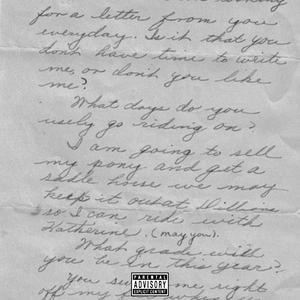 for a letter from you
everyday. Is it that you
dont have time to write
me, or don't you like
me?
What days do you
usely go riding on?
I am going to sell
my pony and get a
sadle horse we may
keep it out at Dillins
so I can ride with
Katherine. (may you).
What grade will
you be in this year?
You me right
off my
PARENTAL
ADVISORY
EXPLICIT CONTENT